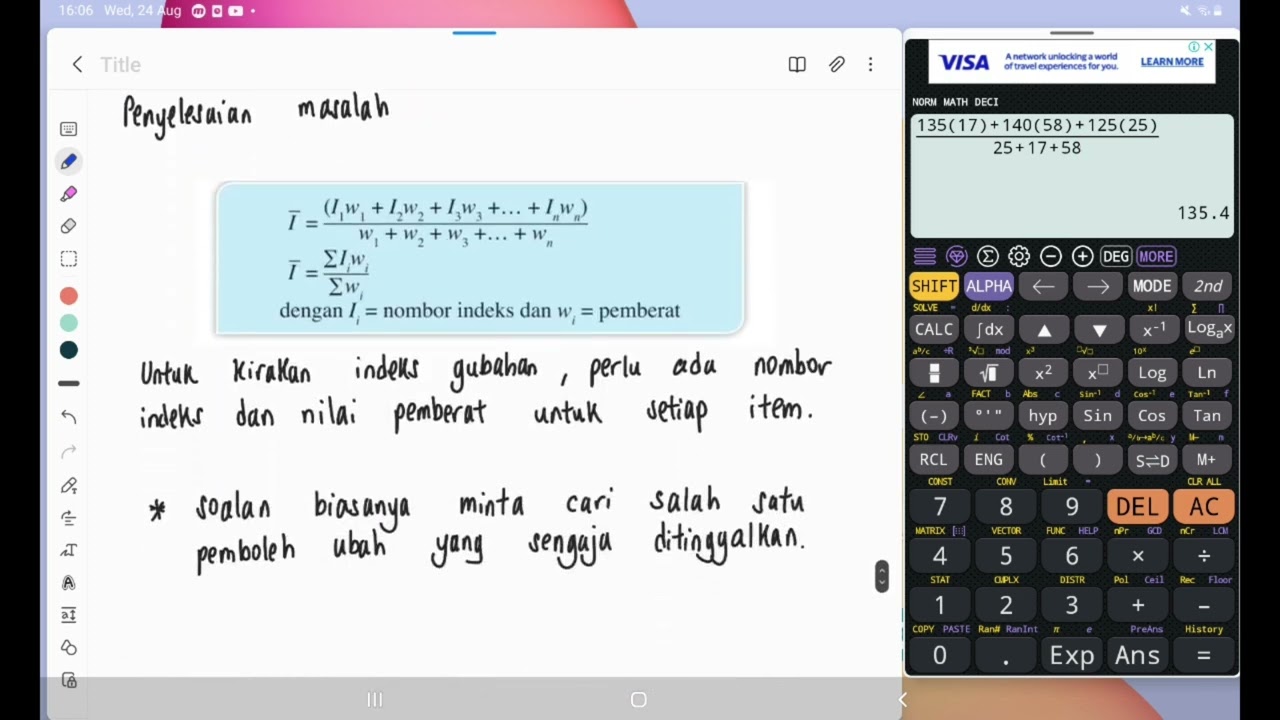 16:06 Wed, 24 Aug
Title
Penyelesaian masalah
Ī = (I₁w₁ + I₂w₂ + I₃w₃ +… + Iₙwₙ) / w₁ + w₂ + w₃ +… + wₙ
Ī = ΣIᵢwᵢ / Σwᵢ
dengan Iᵢ = nombor indeks dan wᵢ = pemberat
Untuk kirakan indeks gubahan, perlu ada nombor
indeks dan nilai pemberat untuk setiap item.
* soalan biasanya minta cari salah satu
pemboleh ubah yang sengaja ditinggalkan.
VISA
A network unlocking a world
of travel experiences for you.
LEARN MORE
NORM MATH DECI
135(17)+140(58)+125(25)
25+17+58
135.4
DEG MORE
SHIFT ALPHA ← → MODE 2nd
SOLVE = d/dx : x! Σ Π
CALC ∫dx ▲ ▼ x⁻¹ Logₐx
a b/c ÷R ³√□ mod x³ □√□ 10ˣ e□
√□ x² x□ Log Ln
∠ a FACT b Abs c Sin⁻¹ d Cos⁻¹ e Tan⁻¹ f
(−) °'" hyp Sin Cos Tan
STO CLRv i Cot % Cot⁻¹ , x y M- m
RCL ENG ( ) S⇌D M+
CONST CONV Limit ∞ CLR ALL
7 8 9 DEL AC
MATRIX VECTOR FUNC HELP nPr GCD nCr LCM
4 5 6 × ÷
STAT CMPLX DISTR Pol Ceil Rec Floor
1 2 3 + −
COPY PASTE Ran# RanInt π e PreAns History
0 . Exp Ans =